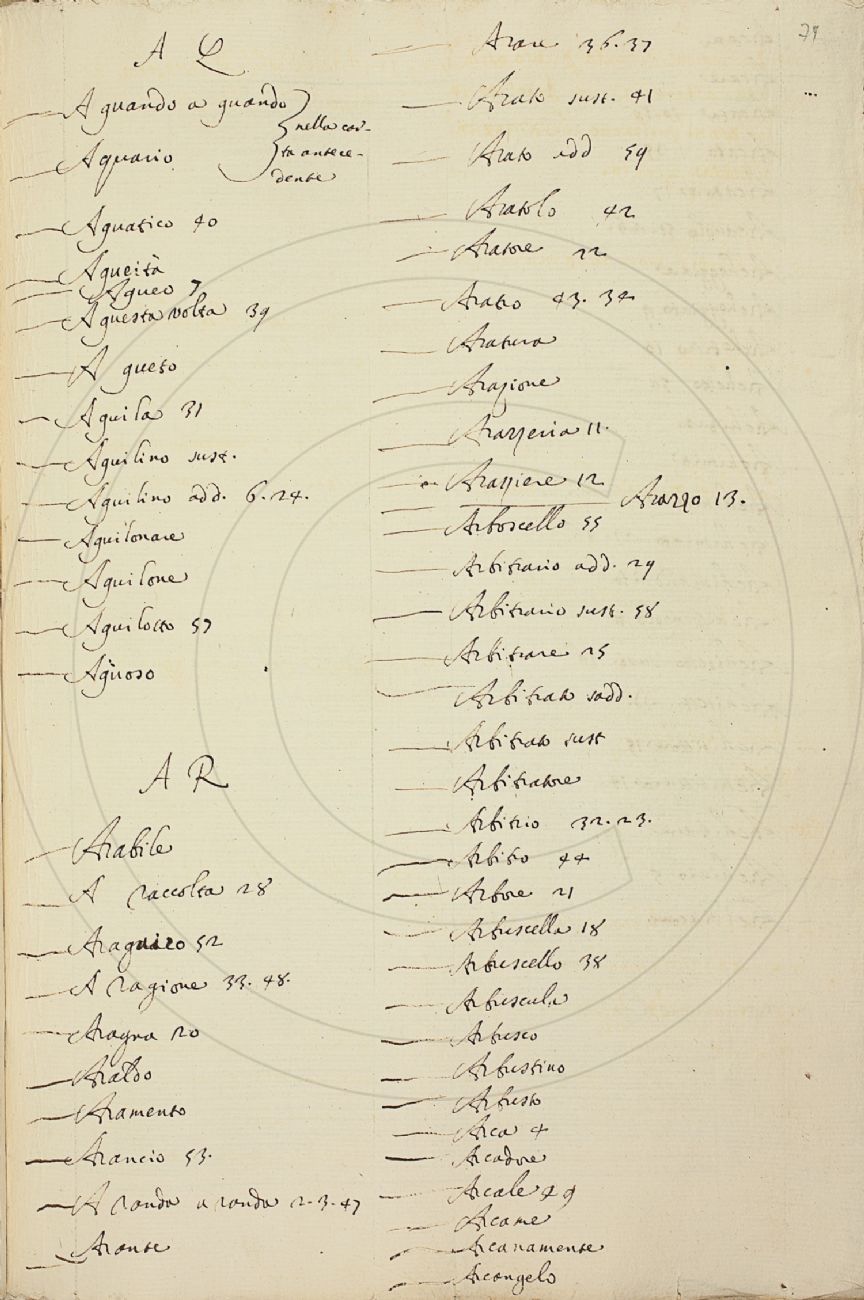 A Q
A quando a quando
Aquario
nella car-
ta antece-
dente
Aquatico 40
Aqueità
Aqueo 7
A questa volta 39
A queto
Aquila 31
Aquilino sust.
Aquilino add. 6. 24.
Aquilonare
Aquilone
Aquilotto 57
Aquoso
A R
Arabile
A raccolta 28
52
A ragione 33. 48.
Aragna 20
Araldo
Aramento
Arancio 53.
A randa a randa 2. 3. 47
Arante
Arare 36. 37
Arato sust. 41
Arato add 59
Aratolo 42
Aratore 22
Aratro 43. 34
Aratura
Arazione
Arazzeria 11.
Arazziere 12
Arazzo 13.
Arboscello 55
Arbitrario add. 29
Arbitrario sust. 58
Arbitrare 25
Arbitrato add.
Arbitrato sust
Arbitratore
Arbitrio 32. 23.
Arbitro 44
Arbore 21
Arbuscella 18
Arbuscello 38
Arbuscula
Arbusco
Arbustino
Arbusto
Arca 4
Arcadore
Arcale 49
Arcame
Arcanamente
Arcangelo